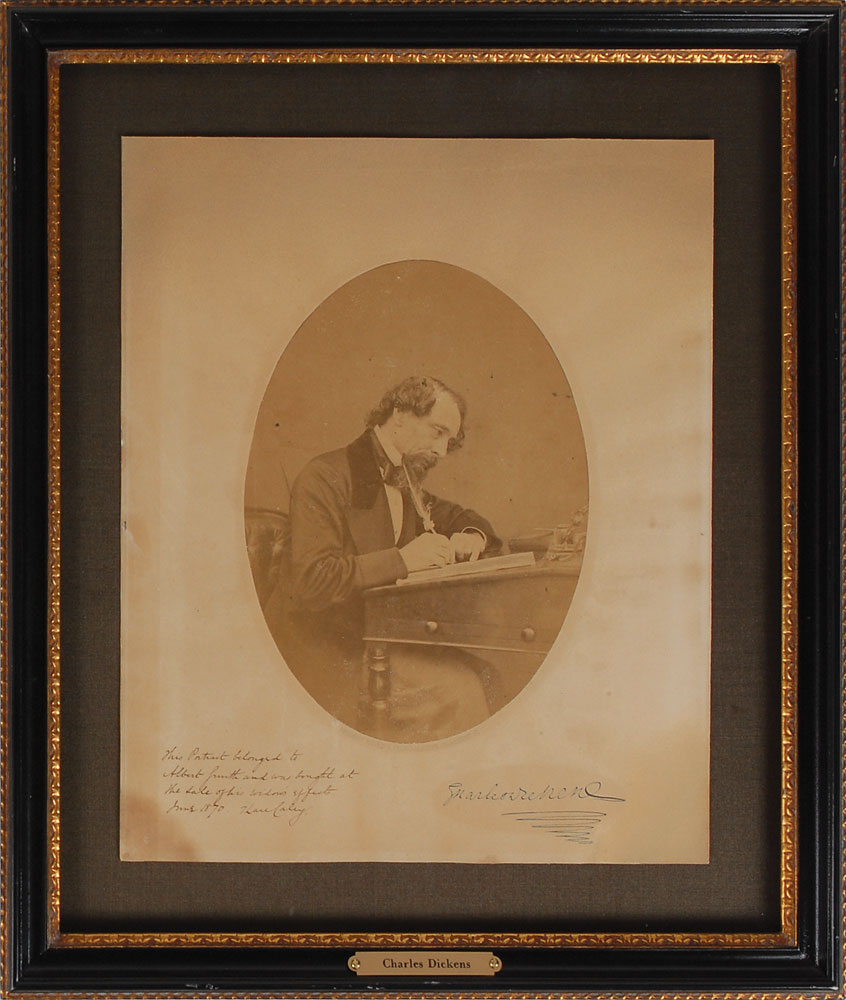 This Portrait belonged to
Albert Smith and was bought at
the Sale of his widows effects
June 1870
Charles Dickens
Charles Dickens